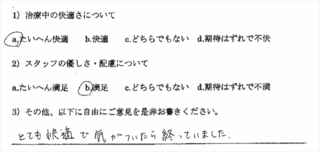 1) 治療中の快適さについて
a.たいへん快適 b.快適 c.どちらでもない d.期待はずれで不快
2) スタッフの優しさ・配慮について
a.たいへん満足 b.満足 c.どちらでもない d.期待はずれで不満
3) その他、以下に自由にご意見を是非お書きください。
とても快適で気がついたら終っていました.